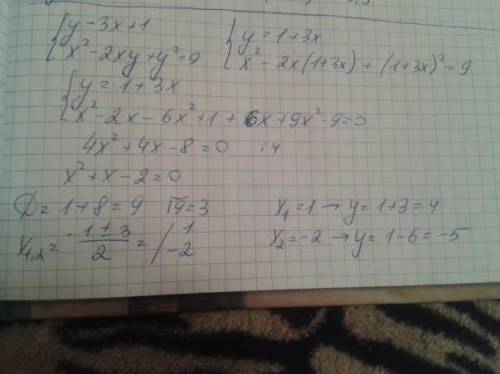 { y - 3x + 1 { y = 1 + 3x
{ x² - 2xy + y² = 9 { x² - 2x(1+3x) + (1+3x)² = 9
{ y = 1 + 3x
{ x² - 2x - 6x² + 1 + 6x + 9x² - 9 = 0
4x² + 4x - 8 = 0 :4
x² + x - 2 = 0
D = 1 + 8 = 9 √9 = 3 x₁ = 1 → y = 1 + 3 = 4
x₁,₂ = (-1 ± 3)/2 = / 1 -2 x₂ = -2 → y = 1 - 6 = -5